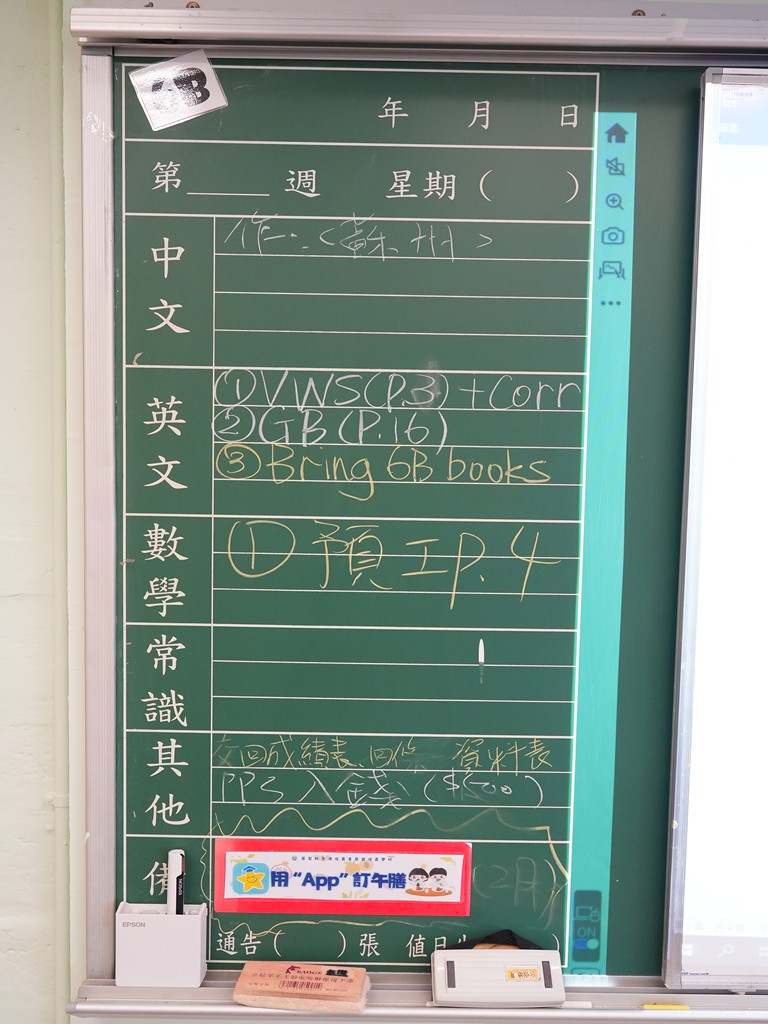 6B
年 月 日
第 週 星期 ( )
中文
作:〈蘇州〉
英文
①VWS(P.3)+Corr
②GB(P.16)
③Bring 6B books
數學
①預工P.4
常識
其他
交回成績表、回條 資料表
PPS入錢($500)
備
用“App”訂午膳
(2月)
通告( )張 值日
EPSON
ON